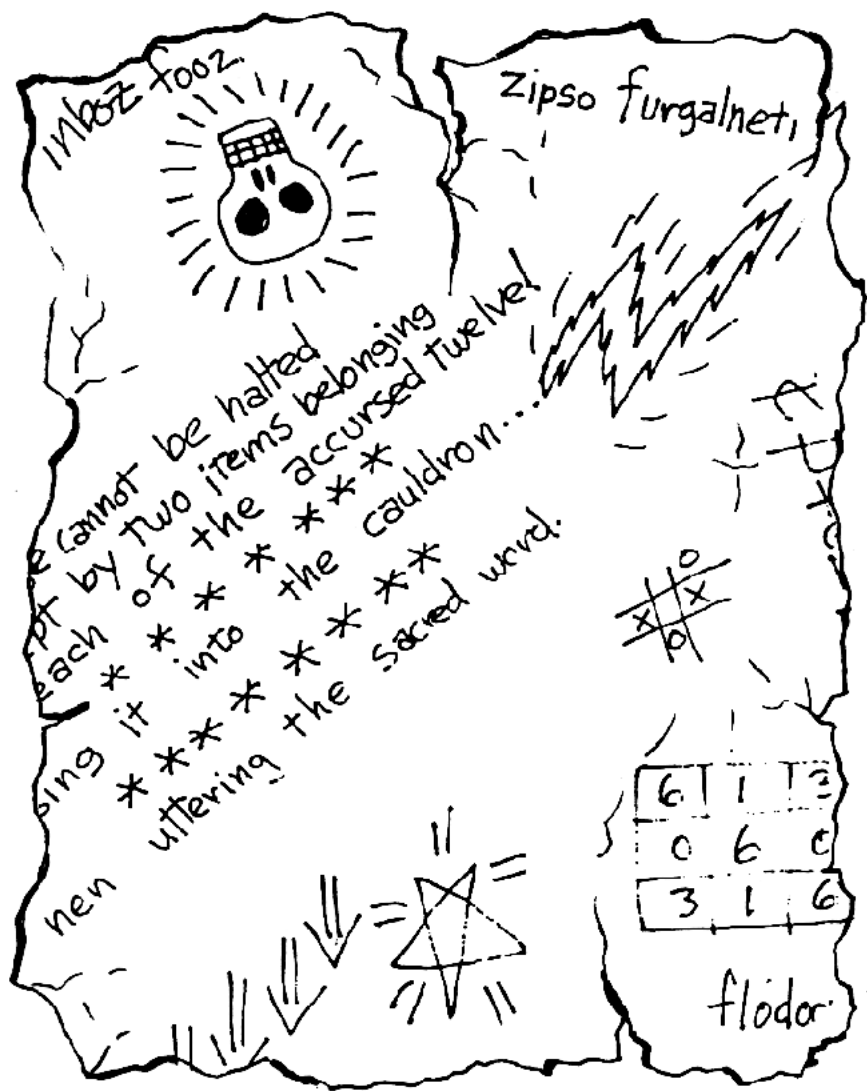 inboz fooz.
zipso furgalneti,
e cannot be halted
pt by two items belonging
each of the accursed twelve!
* * * * * * *
sing it into the cauldron...
* * * * * * * *
nen uttering the sacred word.
O
X X
O
6 1
0 6
3 1 6
flodor.